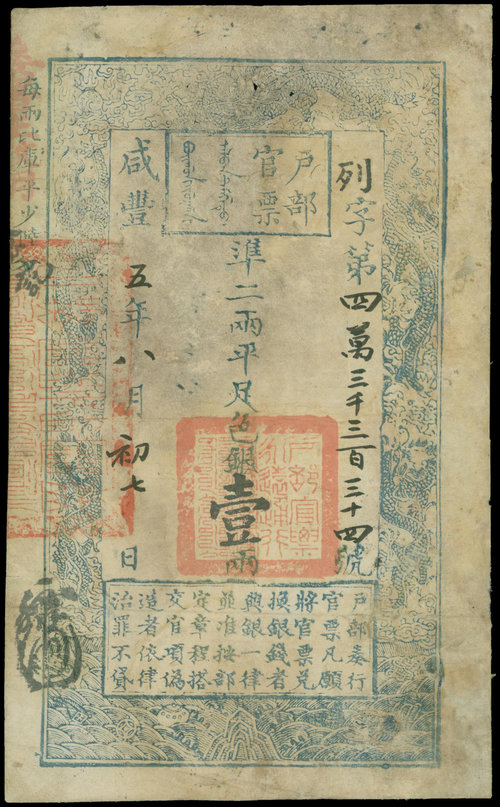 列字第四萬三千三百三十四號
戶部
官票
準二兩平足色銀壹兩
咸豐五年八月初七日
戶部奏行
官票凡願
將官票兌
換銀錢者
與銀一律
並准按部
定章程搭
交官項偽
造者依律
治罪不貸
每兩比庫平少